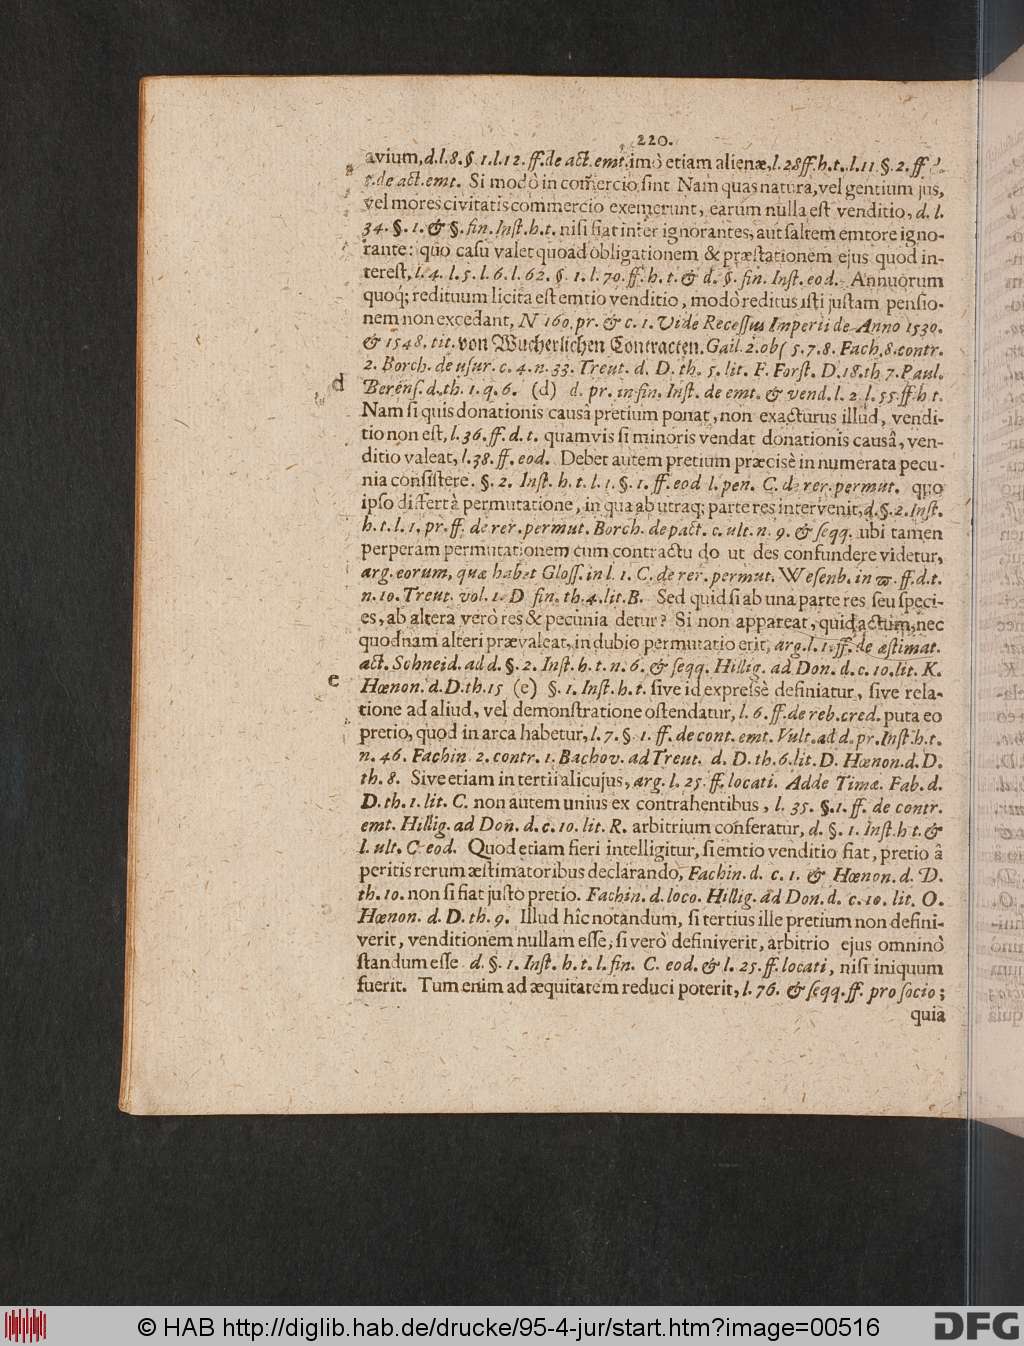 220.
avium, d. l. 8. §. 1. l. 12. ff. de act. emt. imò etiam alienæ, l. 28 ff. h. t. l. 11 §. 2. ff
de act. emt. Si modò in com̃ercio ſint Nam quas natura, vel gentium jus,
vel mores civitatis commercio exemerunt, earum nulla eſt venditio, d. l.
34. §. 1. & §. fin. Inſt. h. t. niſi fiat inter ignorantes, aut ſaltem emtore igno-
rante: quo caſu valet quoad obligationem & præſtationem ejus quod in-
tereſt, l. 4. l. 5. l. 6. l. 62. §. 1. l. 70. ff. h. t. & d. §. fin. Inſt. eod. Annuorum
quoq; redituum licita eſt emtio venditio, modò reditus iſti juſtam penſio-
nem non excedant, N 160. pr. & c. 1. Vide Receſſus Imperii de Anno 1530.
& 1548. tit. von Wucherlichen Contracten. Gail. 2. obſ 5. 7. 8. Fach. 8. contr.
2. Borch. de uſur. c. 4. n. 33. Treut. d. D. th. 5. lit. F. Forſt. D. 18. th 7. Paul.
d Berenſ. d. th. 1. q. 6. (d) d. pr. in fin. Inſt. de emt. & vend. l. 2 l. 55. ff h t.
Nam ſi quis donationis causâ pretium ponat, non exacturus illud, vendi-
tio non eſt, l. 36. ff. d. t. quamvis ſi minoris vendat donationis causâ, ven-
ditio valeat, l. 38. ff. eod. Debet autem pretium præcisè in numerata pecu-
nia conſiſtere. §. 2. Inſt. h. t. l. 1. §. 1. ff. eod l. pen. C. de rer. permut. quo
ipſo differt à permutatione, in qua ab utraq; parte res intervenit, d. §. 2. Inſt.
h. t. l. 1. pr. ff. de rer. permut. Borch. de pact. c. ult. n. 9. & ſeqq. ubi tamen
perperam permutationem cum contractu do ut des confundere videtur,
arg. eorum, quæ habet Gloſſ. in l. 1. C. de rer. permut. Weſenb. in ϖ. ff. d. t.
n. 10. Treut. vol. 1. D fin. th. 4. lit. B. Sed quid ſi ab una parte res ſeu ſpeci-
es, ab altera verò res & pecunia detur? Si non appareat, quid actum, nec
quodnam alteri prævaleat, in dubio permutatio erit, arg. l. 1. ff. de æſtimat.
act. Schneid. ad d. §. 2. Inſt. h. t. n. 6. & ſeqq. Hillig. ad Don. d. c. 10. lit. K.
e Hœnon. d. D. th. 15 (e) §. 1. Inſt. h. t. ſive id expreſsè definiatur, ſive rela-
tione ad aliud, vel demonſtratione oſtendatur, l. 6. ff. de reb. cred. puta eo
pretio, quod in arca habetur, l. 7. § 1. ff. de cont. emt. Vult. ad d. pr. Inſt. h. t.
n. 46. Fachin 2. contr. 1. Bachov. ad Treut. d. D. th. 6. lit. D. Hœnon. d. D.
th. 8. Sive etiam in tertii alicujus, arg. l. 25. ff. locati. Adde Timæ. Fab. d.
D. th. 1. lit. C. non autem unius ex contrahentibus, l. 35. §. 1. ff. de contr.
emt. Hillig. ad Don. d. c. 10. lit. R. arbitrium conferatur, d. §. 1. Inſt. h t. &
l. ult. C eod. Quod etiam fieri intelligitur, ſi emtio venditio fiat, pretio â
peritis rerum æſtimatoribus declarando, Fachin. d. c. 1. & Hœnon. d. D.
th. 10. non ſi fiat juſto pretio. Fachin. d. loco. Hillig. ad Don. d. c. 10. lit. O.
Hœnon. d. D. th. 9. Illud hic notandum, ſi tertius ille pretium non defini-
verit, venditionem nullam eſſe, ſi verò definiverit, arbitrio ejus omninò
ſtandum eſſe d. §. 1. Inſt. h. t. l. fin. C. eod. & l. 25. ff. locati, niſi iniquum
fuerit. Tum enim ad æquitatem reduci poterit, l. 76. & ſeqq. ff. pro ſocio;
quia
© HAB http://diglib.hab.de/drucke/95-4-jur/start.htm?image=00516
DFG